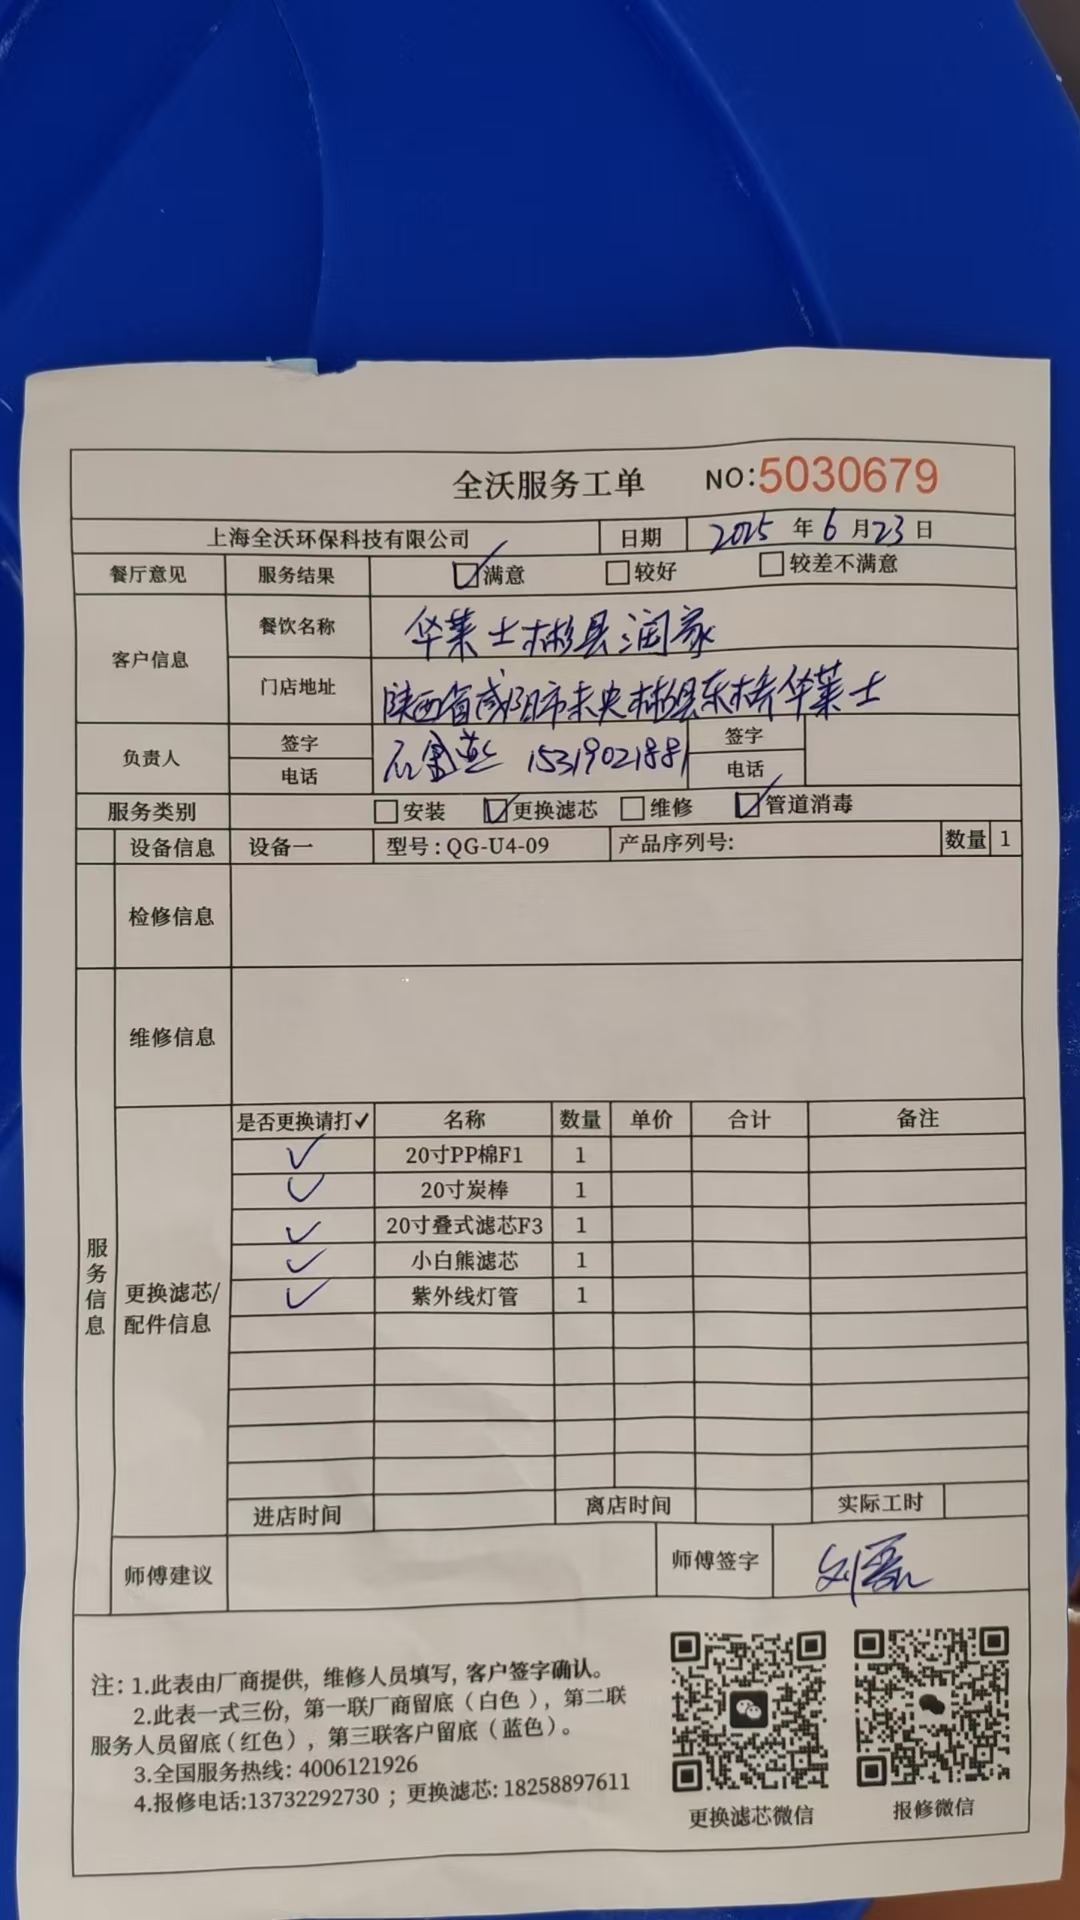 全沃服务工单 NO:5030679
上海全沃环保科技有限公司 日期 2025 年 6 月 23 日
餐厅意见 服务结果 ☑满意 □较好 □较差不满意
客户信息 餐饮名称 华莱士彬县润家
门店地址 陕西省咸阳市未央彬县东桥华莱士
负责人 签字 石 燕 15319021881 签字
电话 电话
服务类别 □安装 ☑更换滤芯 □维修 ☑管道消毒
设备信息 设备一 型号:QG-U4-09 产品序列号: 数量 1
检修信息
维修信息
服务信息
更换滤芯/配件信息
是否更换请打✓ 名称 数量 单价 合计 备注
✓ 20寸PP棉F1 1
✓ 20寸炭棒 1
✓ 20寸叠式滤芯F3 1
✓ 小白熊滤芯 1
✓ 紫外线灯管 1
进店时间 离店时间 实际工时
师傅建议 师傅签字 刘磊
注: 1.此表由厂商提供, 维修人员填写, 客户签字确认。
2.此表一式三份, 第一联厂商留底(白色), 第二联
服务人员留底(红色), 第三联客户留底(蓝色)。
3.全国服务热线: 4006121926
4.报修电话:13732292730 ; 更换滤芯: 18258897611
更换滤芯微信 报修微信